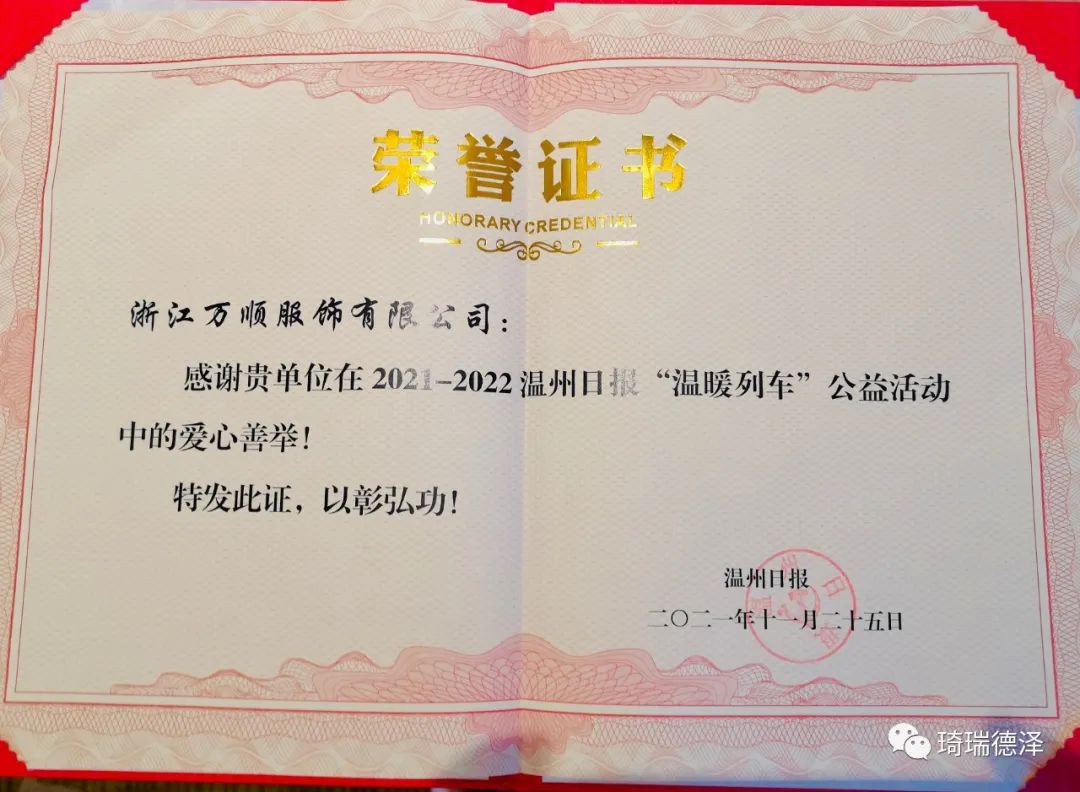 荣誉证书
HONORARY CREDENTIAL
浙江万顺服饰有限公司：
感谢贵单位在2021-2022温州日报“温暖列车”公益活动
中的爱心善举！
特发此证，以彰弘功！
温州日报
二〇二一年十一月二十五日
温州日报
琦瑞德泽